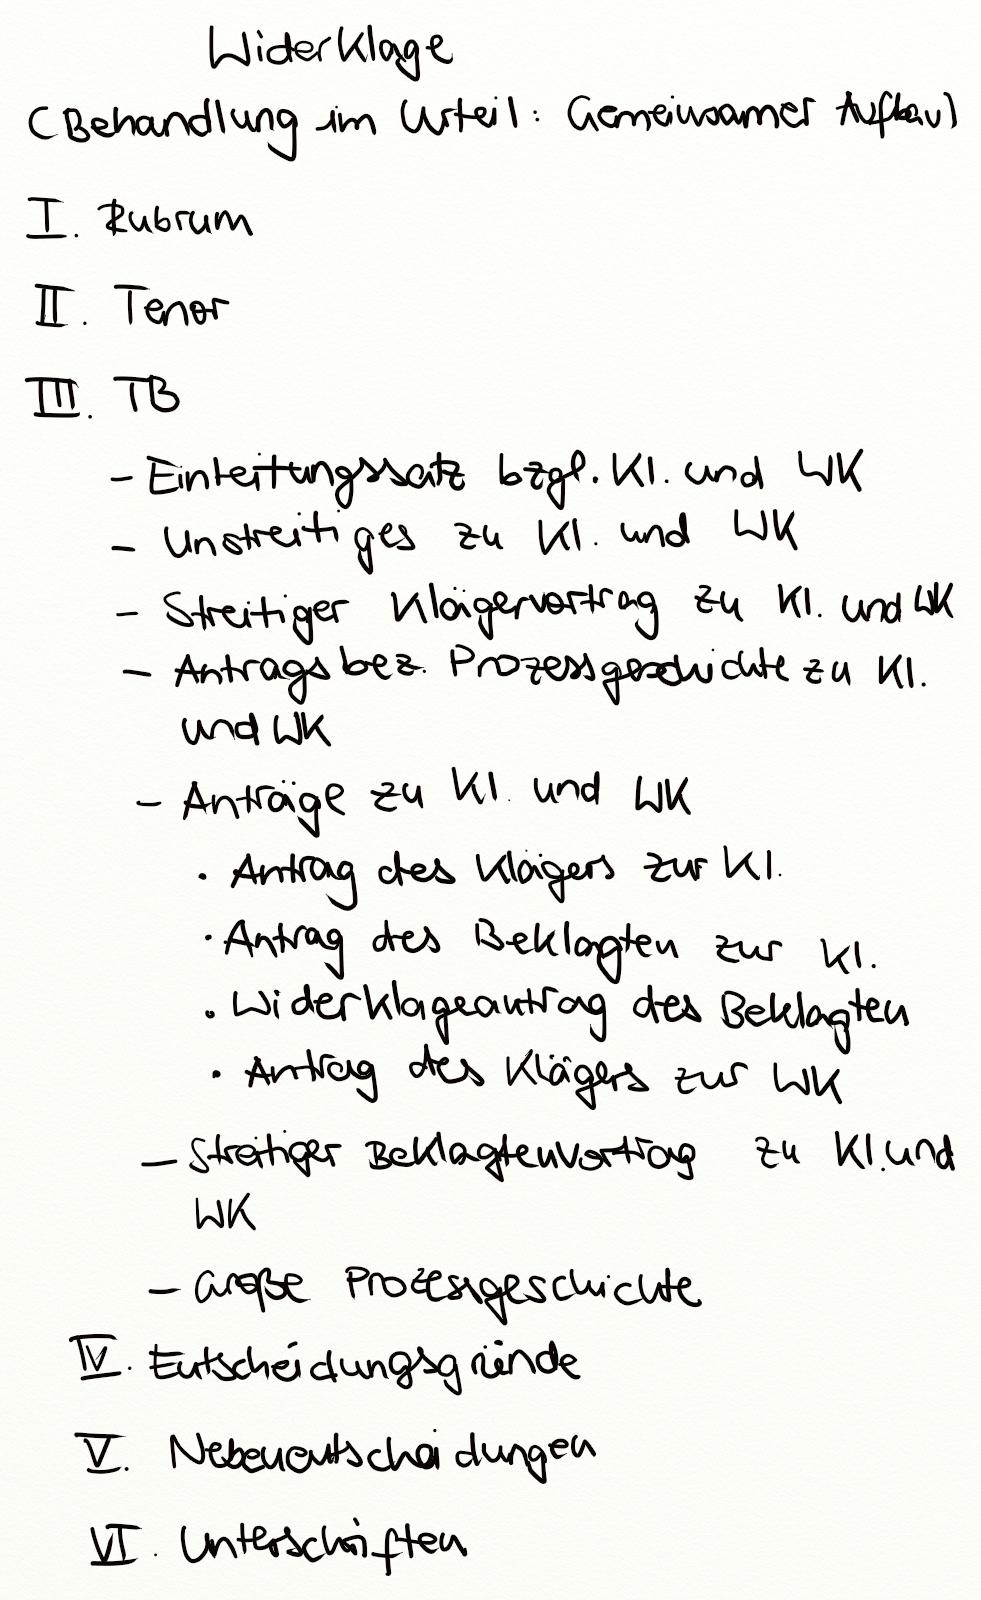 Widerklage
(Behandlung im Urteil: Gemeinsamer Aufbau)
I. Rubrum
II. Tenor
III. TB
- Einleitungssatz bzgl. Kl. und WK
- Unstreitiges zu Kl. und WK
- Streitiger Klägervortrag zu Kl. und WK
- Antragsbez. Prozessgeschichte zu Kl.
und WK
- Anträge zu Kl. und WK
• Antrag des Klägers zur Kl.
• Antrag des Beklagten zur Kl.
• Widerklageantrag des Beklagten
• Antrag des Klägers zur WK
- Streitiger Beklagtenvortrag zu Kl. und
WK
- Große Prozessgeschichte
IV. Entscheidungsgründe
V. Nebenentscheidungen
VI. Unterschriften